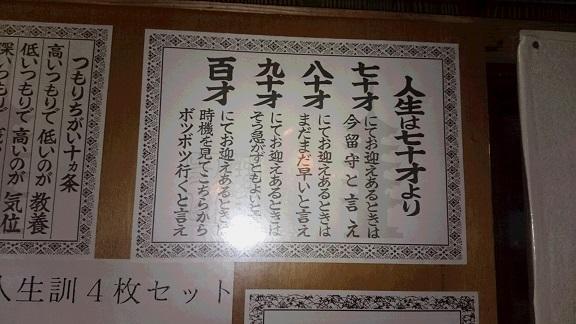 人生は七十才より
七十才 にてお迎えあるときは
今留守と言え
八十才 にてお迎えあるときは
まだまだ早いと言え
九十才 にてお迎えあるときは
そう急がずともよいと
百才 にてお迎えあるときは
時機を見てこちらから
ボツボツ行くと言え
つもりちがい十ヵ条
高いつもりで 低いのが 教養
低いつもりで 高いのが 気位
深いつもりで
人生訓4枚セット